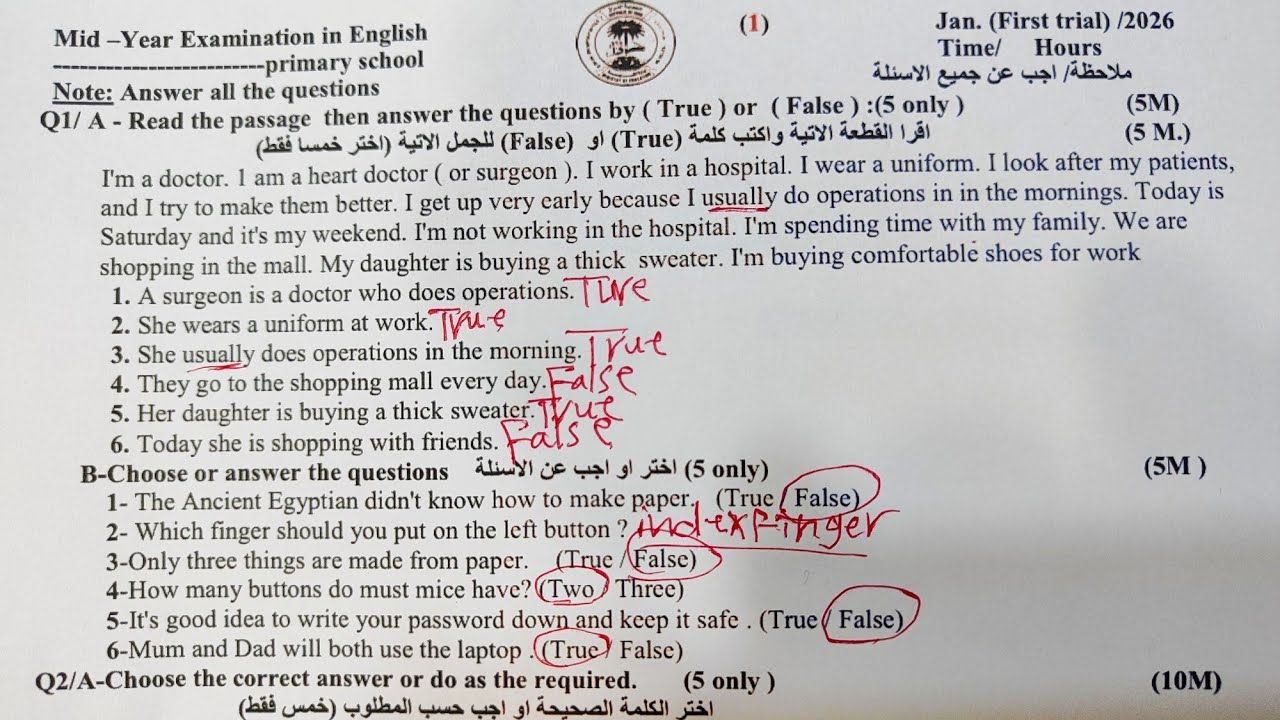 Mid –Year Examination in English
(1)
Jan. (First trial) /2026
-------------------------primary school
Time/ Hours
Note: Answer all the questions
ملاحظة/ اجب عن جميع الاسئلة
Q1/ A - Read the passage then answer the questions by ( True ) or ( False ) :(5 only ) (5M)
اقرا القطعة الاتية واكتب كلمة (True) او (False) للجمل الاتية (اختر خمسا فقط) (5 M.)
I'm a doctor. 1 am a heart doctor ( or surgeon ). I work in a hospital. I wear a uniform. I look after my patients,
and I try to make them better. I get up very early because I usually do operations in in the mornings. Today is
Saturday and it's my weekend. I'm not working in the hospital. I'm spending time with my family. We are
shopping in the mall. My daughter is buying a thick sweater. I'm buying comfortable shoes for work
1. A surgeon is a doctor who does operations. Ture
2. She wears a uniform at work. True
3. She usually does operations in the morning. True
4. They go to the shopping mall every day. False
5. Her daughter is buying a thick sweater. True
6. Today she is shopping with friends. False
B-Choose or answer the questions اختر او اجب عن الاسئلة (5 only) (5M )
1- The Ancient Egyptian didn't know how to make paper. (True / False)
2- Which finger should you put on the left button ? index finger
3-Only three things are made from paper. (True / False)
4-How many buttons do must mice have? (Two / Three)
5-It's good idea to write your password down and keep it safe . (True / False)
6-Mum and Dad will both use the laptop . (True / False)
Q2/A-Choose the correct answer or do as the required. (5 only ) (10M)
اختر الكلمة الصحيحة او اجب حسب المطلوب (خمس فقط)